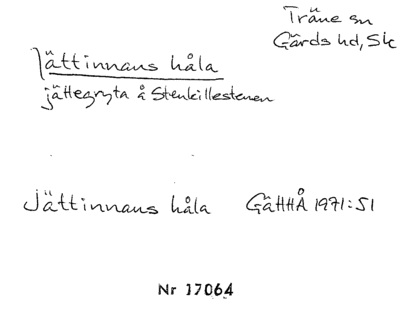 Träne sn
Gärds hd, Sk
Jättinnans håla
jättegryta å Stenkillestenen
Jättinnans håla GäHHÅ 1971:51
Nr 17064